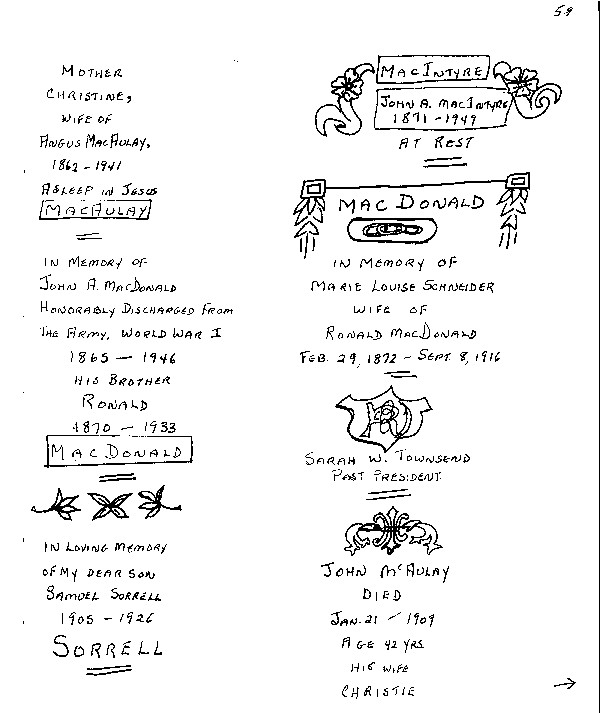 59
MOTHER
CHRISTINE,
WIFE OF
ANGUS MACAULAY,
1862 - 1941
ASLEEP IN JESUS
MACAULAY
IN MEMORY OF
JOHN A. MACDONALD
HONORABLY DISCHARGED FROM
THE ARMY, WORLD WAR I
1865 - 1946
HIS BROTHER
RONALD
1870 - 1933
MACDONALD
IN LOVING MEMORY
OF MY DEAR SON
SAMUEL SORRELL
1905 - 1926
SORRELL
MACINTYRE
JOHN A. MACINTYRE
1871 - 1949
AT REST
MACDONALD
IN MEMORY OF
MARIE LOUISE SCHNEIDER
WIFE OF
RONALD MACDONALD
FEB. 29, 1872 - SEPT. 8, 1916
SARAH W. TOWNSEND
PAST PRESIDENT
JOHN MCAULAY
DIED
JAN. 21 - 1909
AGE 42 YRS
HIS WIFE
CHRISTIE
→